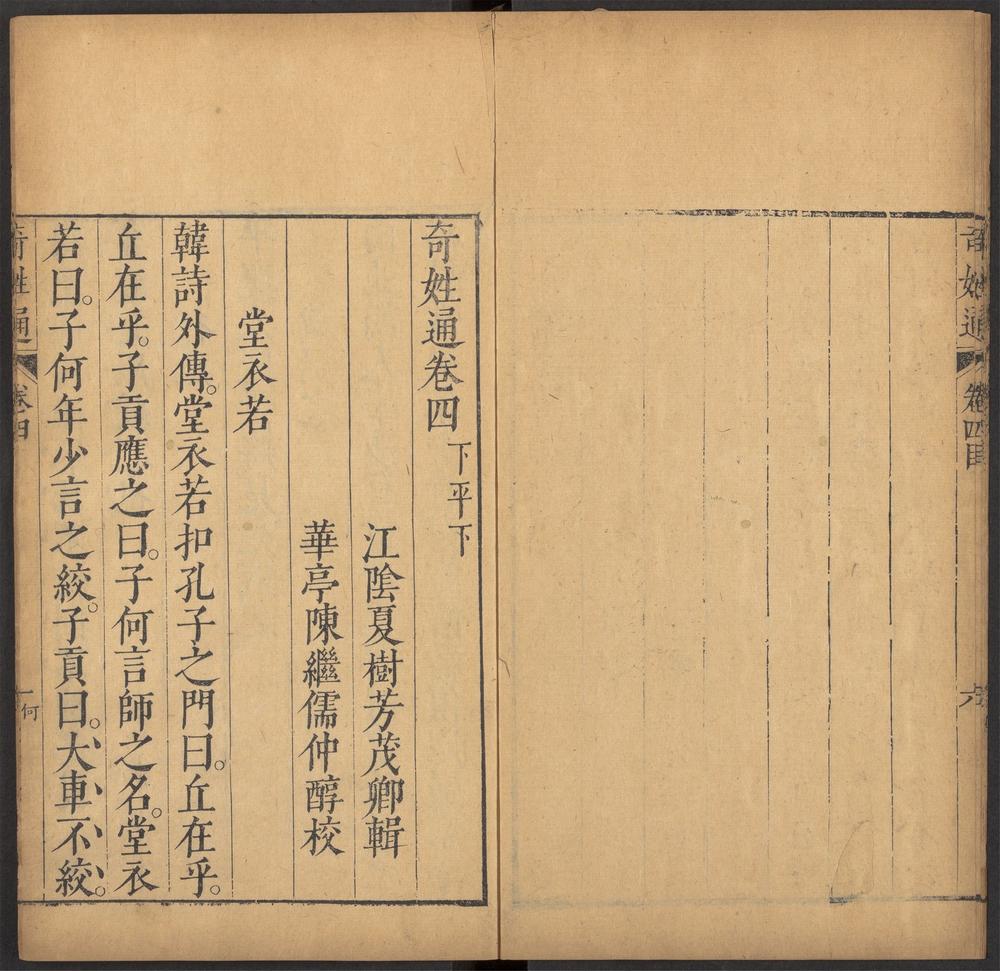 奇姓通 卷四目 六
奇姓通卷四 下平下
江陰夏樹芳茂卿輯
華亭陳繼儒仲醇校
堂衣若
韓詩外傳。堂衣若扣孔子之門曰。丘在乎。
丘在乎。子貢應之曰。子何言師之名。堂衣
若曰。子何年少言之絞。子貢曰。大車不絞。
奇姓通 卷四 一 何